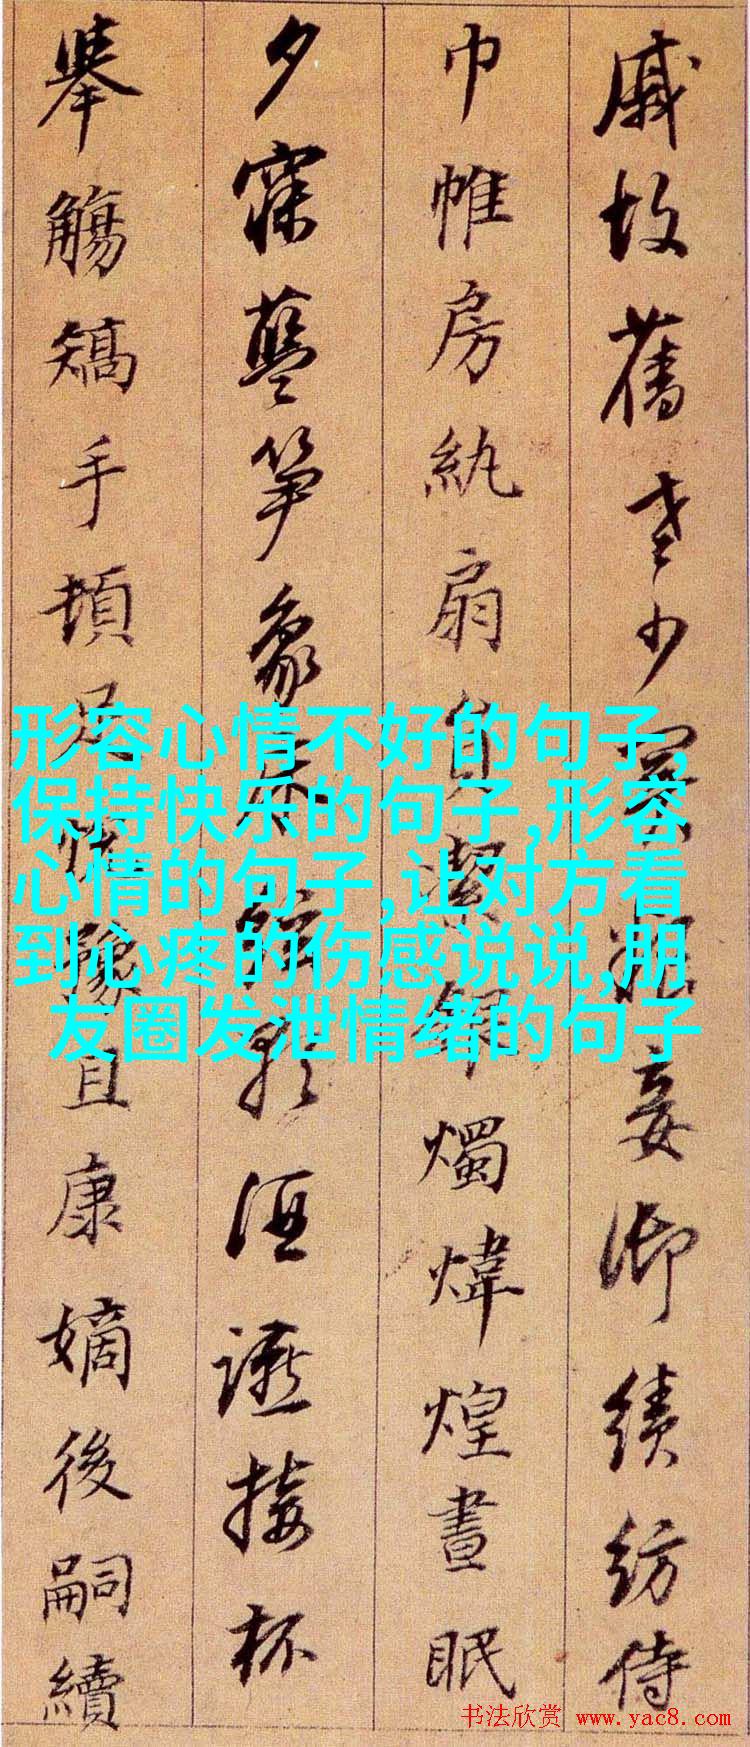 戚故舊老少異粮妾御績紡侍
巾帷房紈扇員潔銀燭煒煌晝眠
夕寐藍笋象床弦歌酒讌接杯
舉觴矯手頓足悅豫且康嫡後嗣續
形容心情不好的句子,
保持快乐的句子,形容
心情的句子,让对方看
到心疼的伤感说说,朋
友圈发泄情绪的句子
书法欣赏 www.yac8.com